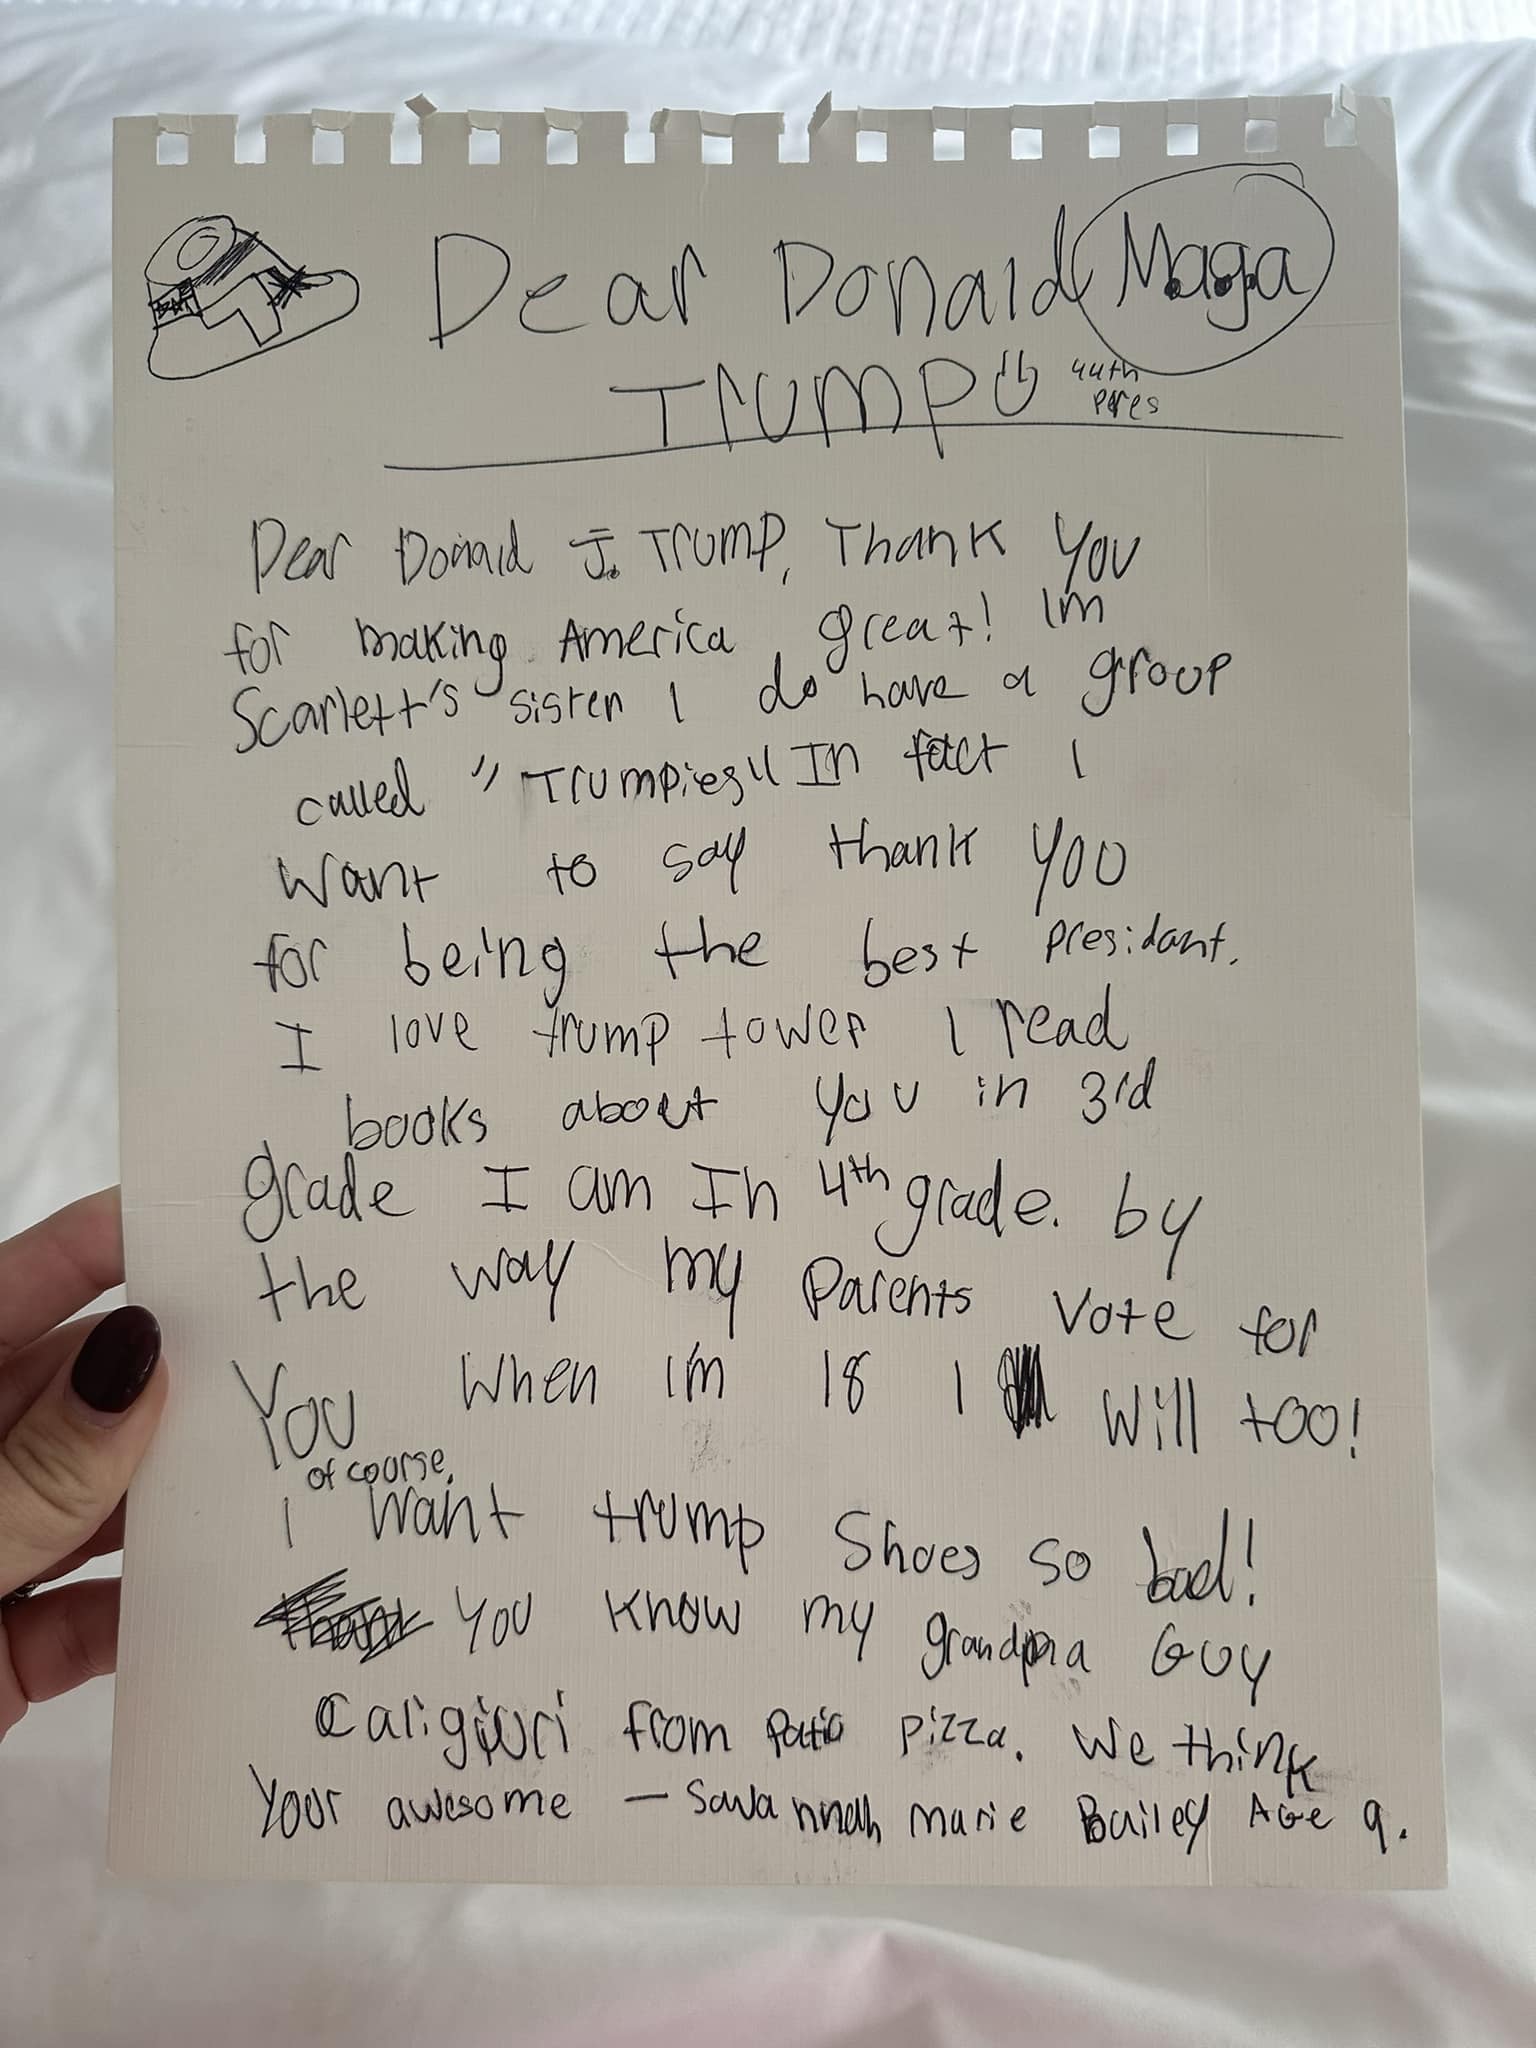 Dear Donald M.a.g.a
Trump 44th
pres
Dear Donald J. Trump, Thank You
for making America great! Im
Scarlett's sister I do have a group
called "Trumpies" In fact I
want to say thank you
for being the best presidant.
I love trump tower I read
books about you in 3rd
grade I am In 4th grade. by
the way my Parents vote for
You when I'm 18 I will too!
of course.
I want trump shoes so bad!
You know my grandpa Guy
Caligiuri from Patio pizza. We think
Your awesome - Savannah marie Bailey Age 9.